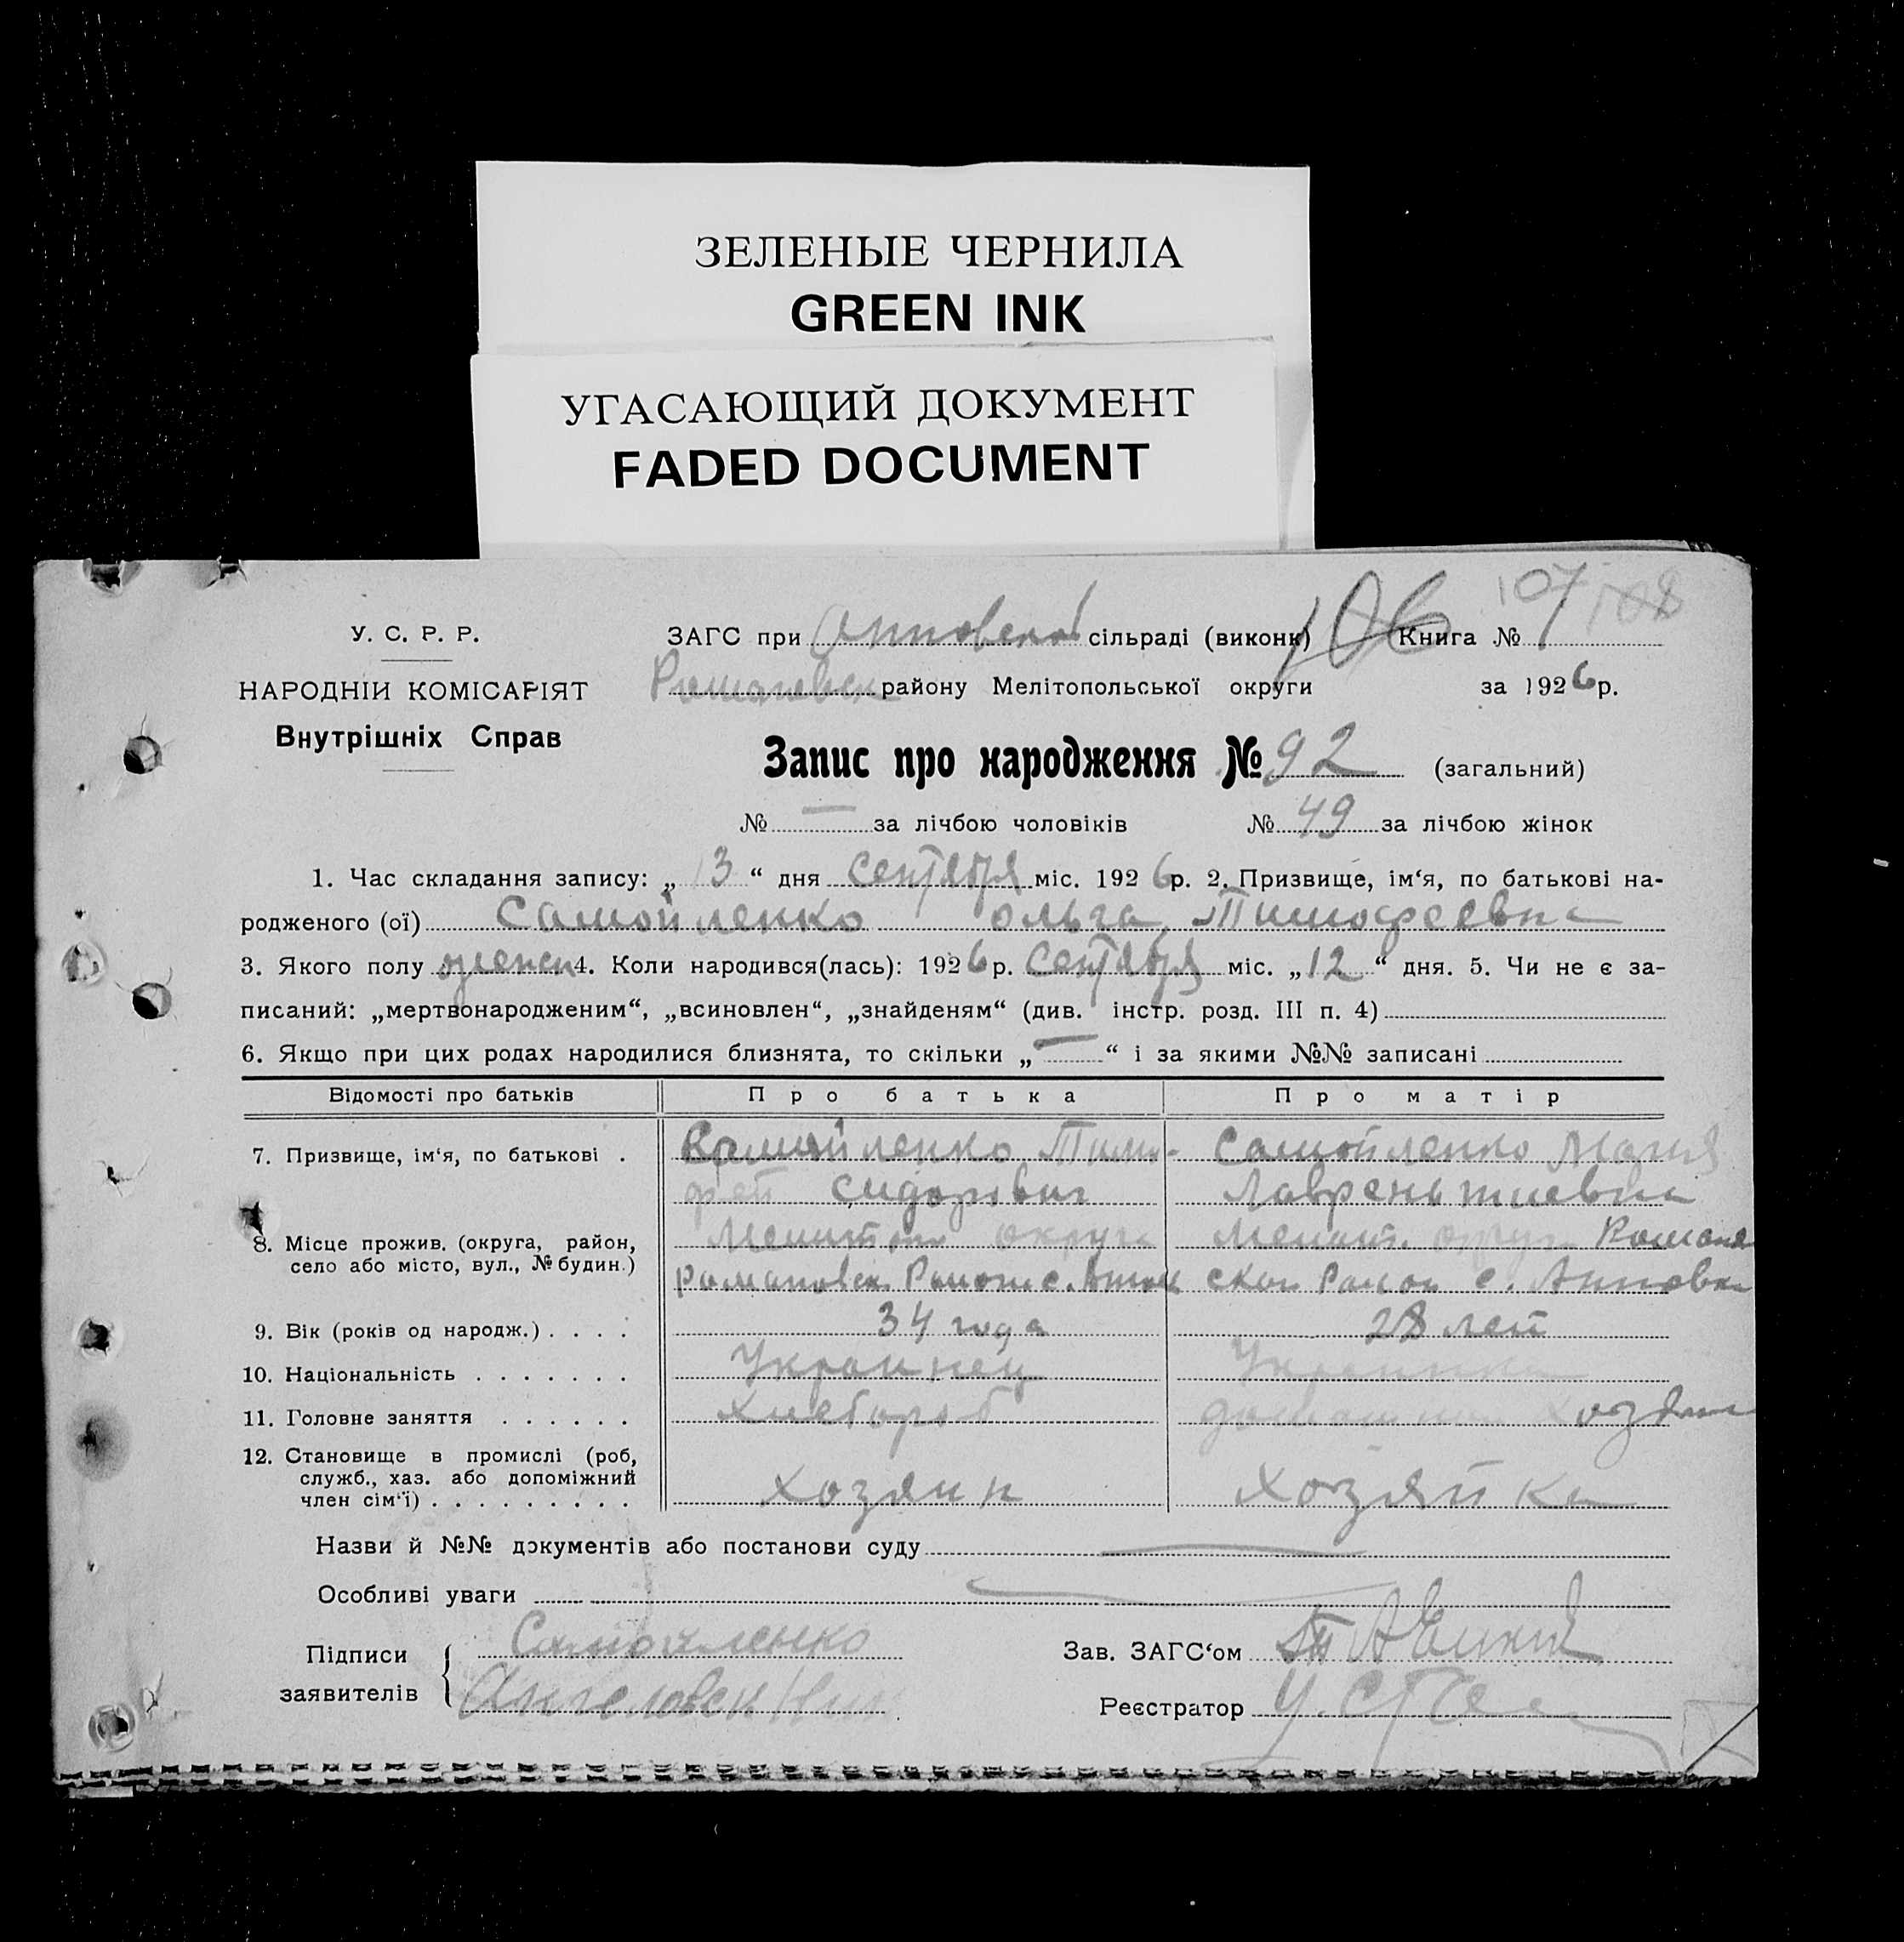 ЗЕЛЕНЫЕ ЧЕРНИЛА
GREEN INK
УГАСАЮЩИЙ ДОКУМЕНТ
FADED DOCUMENT
106 107 108
У. С. Р. Р. ЗАГС при сільраді (виконк) Книга №
НАРОДНІЙ КОМІСАРІЯТ району Мелітопольської округи за 1926 р.
Внутрішніх Справ
Запис про народження № 92 (загальний)
№ — за лічбою чоловіків № 49 за лічбою жінок
1. Час складання запису: „13“ дня Сентября міс. 1926 р. 2. Призвище, ім‘я, по батькові на-
родженого (ої) Самойленко Ольга Тимофеевна
3. Якого полу женск 4. Коли народився(лась): 1926 р. Сентября міс. „12“ дня. 5. Чи не є за-
писаний: „мертвонародженим“, „всиновлен“, „знайденям“ (див. інстр. розд. III п. 4)
6. Якщо при цих родах народилися близнята, то скільки „—“ і за якими №№ записані
Відомості про батьків Про батька Про матір
7. Призвище, ім‘я, по батькові . Самойленко Тимо- Самойленко Мария
фей Сидорович Лаврентиевна
8. Місце прожив. (округа, район, округа
село або місто, вул., № будин.) романовск Район с. с. Анновка
9. Вік (років од народж.) . . . . 34 года 28 лет
10. Національність . . . . . . . Украинец Украинка
11. Головне заняття . . . . . . Хлебороб
12. Становище в промислі (роб,
служб., хаз. або допоміжний
член сім‘ї) . . . . . . . . . Хозяин Хозяйка
Назви й №№ документів або постанови суду —
Особливі уваги —
Підписи Самойленко Зав. ЗАГС‘ом
заявителів Реєстратор